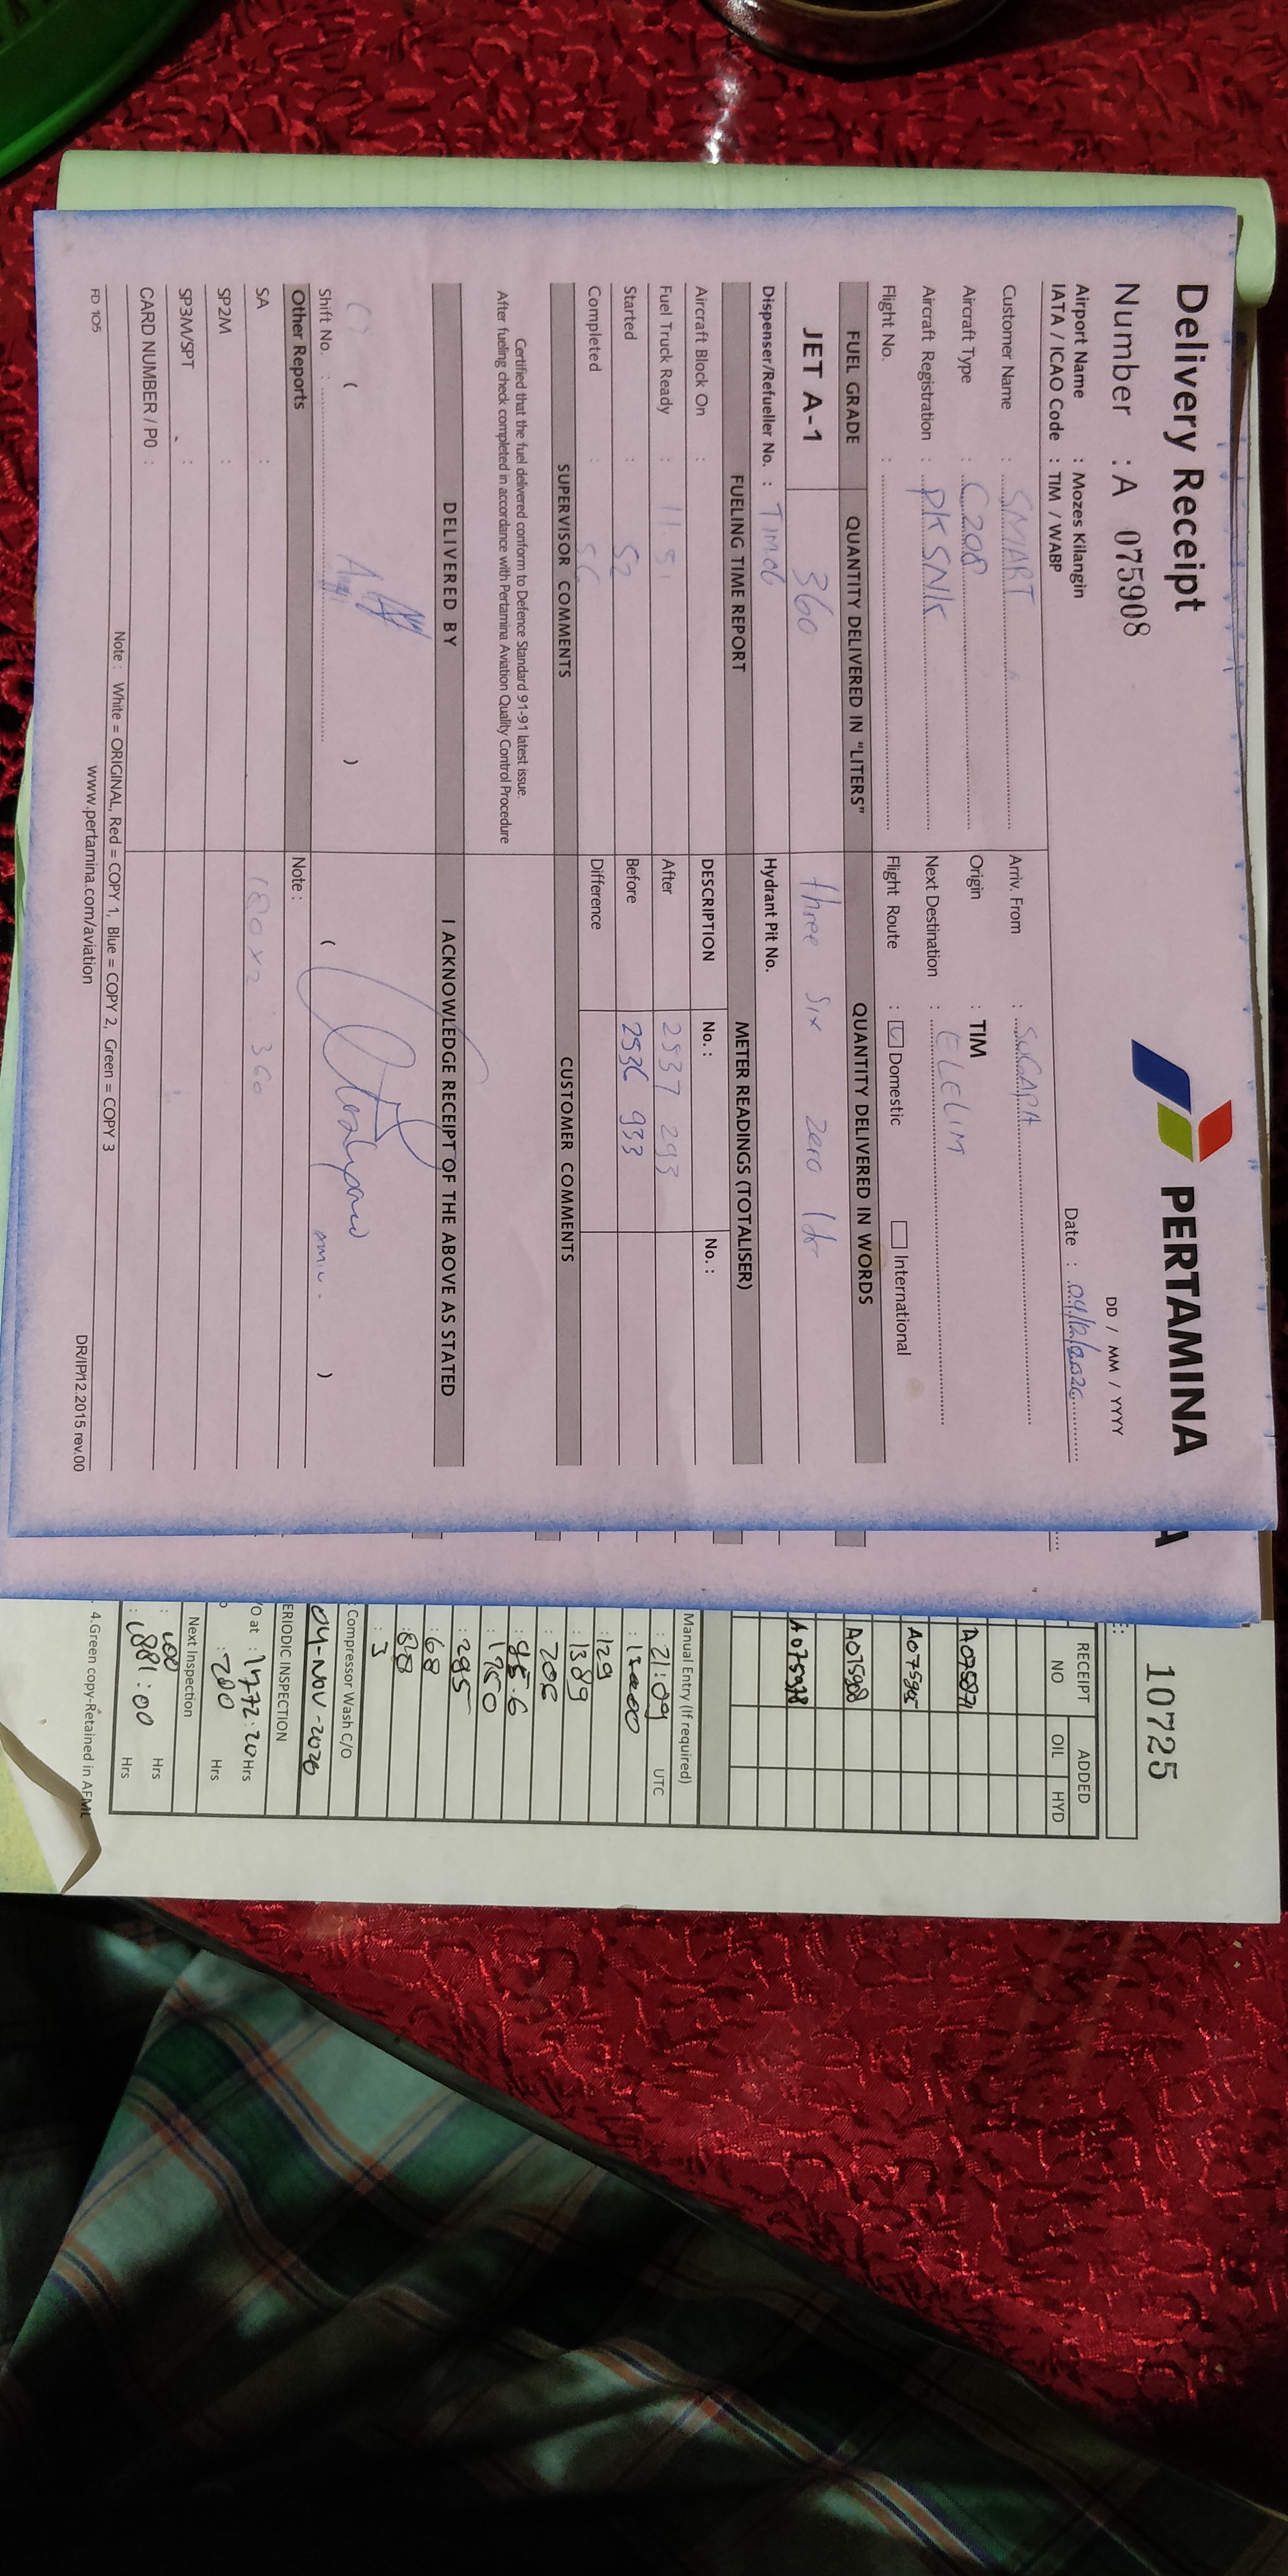 Delivery Receipt
PERTAMINA
Number : A 075908
DD / MM / YYYY
Airport Name : Mozes Kilangin
IATA / ICAO Code : TIM / WABP
Date : 04/12/2020
Customer Name : SMART
Arriv. From : SUGAPA
Aircraft Type : C208
Origin : TIM
Aircraft Registration : PK SNK
Next Destination : ELELIM
Flight No. :
Flight Route : Domestic International
FUEL GRADE QUANTITY DELIVERED IN "LITERS" QUANTITY DELIVERED IN WORDS
JET A-1 360 three six zero ltr
Dispenser/Refueller No. : TIM06 Hydrant Pit No.
FUELING TIME REPORT METER READINGS (TOTALISER)
Aircraft Block On : DESCRIPTION No. : No. :
Fuel Truck Ready : 11.51 After 2537 293
Started : 52 Before 2536 933
Completed : 56 Difference
SUPERVISOR COMMENTS CUSTOMER COMMENTS
Certified that the fuel delivered conform to Defence Standard 91-91 latest issue.
After fueling check completed in accordance with Pertamina Aviation Quality Control Procedure
DELIVERED BY I ACKNOWLEDGE RECEIPT OF THE ABOVE AS STATED
( ) ( )
Shift No. :
Other Reports Note :
SA : 180 x 2 360
SP2M :
SP3M/SPT :
CARD NUMBER / PO :
Note : White = ORIGINAL, Red = COPY 1, Blue = COPY 2, Green = COPY 3
FD 105 www.pertamina.com/aviation DR/IP/12.2015 rev.00
A
10725
RECEIPT NO ADDED
OIL HYD
A075871
A075908
Manual Entry (If required)
: 21:09 UTC
: 129
: 1389
: 206
: 295
: 68
: 3
Compressor Wash C/O
04-NOV-2020
ERIODIC INSPECTION
/O at : 1772:20 Hrs
: 200 Hrs
Next Inspection
: 100 Hrs
: 1881:00 Hrs
4.Green copy-Retained in AFML